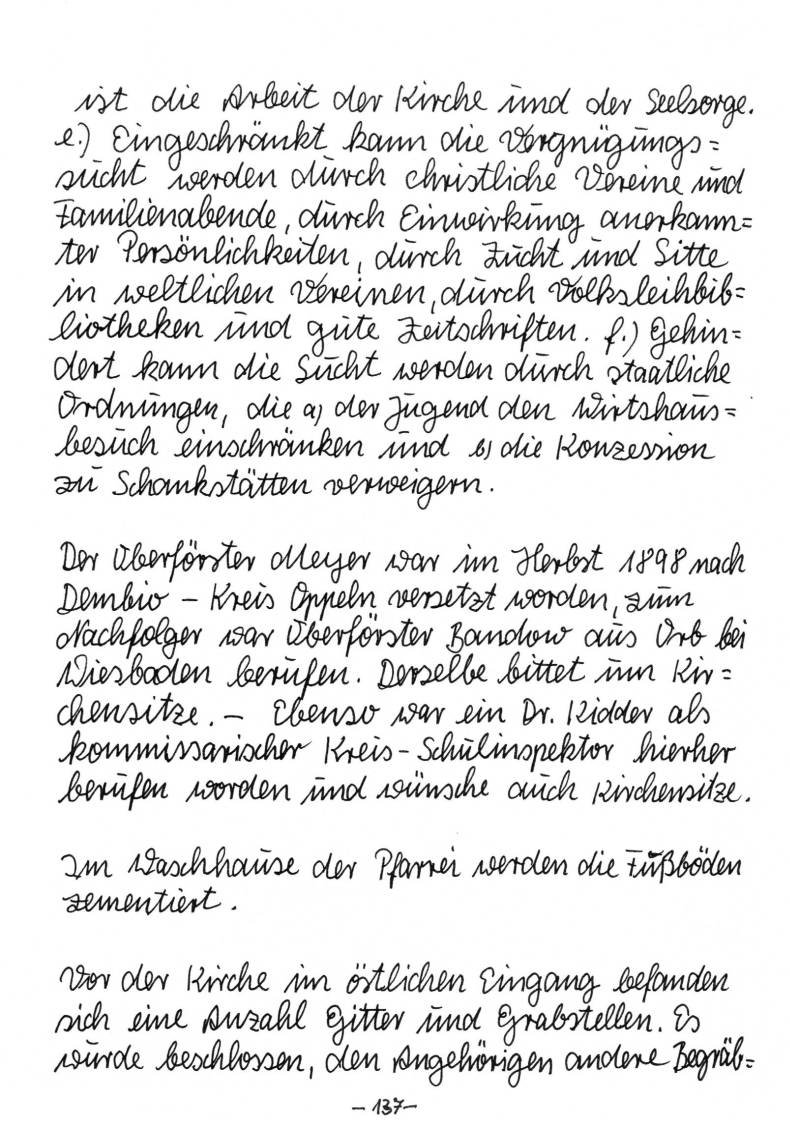 ist die Arbeit der Kirche und der Seelsorge.
e.) Eingeschränkt kann die Vergnügungs=
sucht werden durch christliche Vereine und
Familienabende, durch Einwirkung anerkann=
ter Persönlichkeiten, durch Zucht und Sitte
in weltlichen Vereinen, durch Volksleihbib=
liotheken und gute Zeitschriften. f.) Gehin=
dert kann die Sucht werden durch staatliche
Ordnungen, die a) der Jugend den Wirtshaus=
besuch einschränken und b) die Konzession
zu Schankstätten verweigern.
Der Oberförster Meyer war im Herbst 1898 nach
Dembio – Kreis Oppeln versetzt worden, zum
Nachfolger war Oberförster Bandow aus Orb bei
Wiesbaden berufen. Derselbe bittet um Kir=
chensitze. – Ebenso war ein Dr. Kidder als
kommissarischer Kreis-Schulinspektor hierher
berufen worden und wünsche auch Kirchensitze.
Im Waschhause der Pfarrei werden die Fußböden
zementiert.
Vor der Kirche im östlichen Eingang befanden
sich eine Anzahl Gitter und Grabstellen. Es
wurde beschlossen, den Angehörigen andere Begräb=
– 137 –